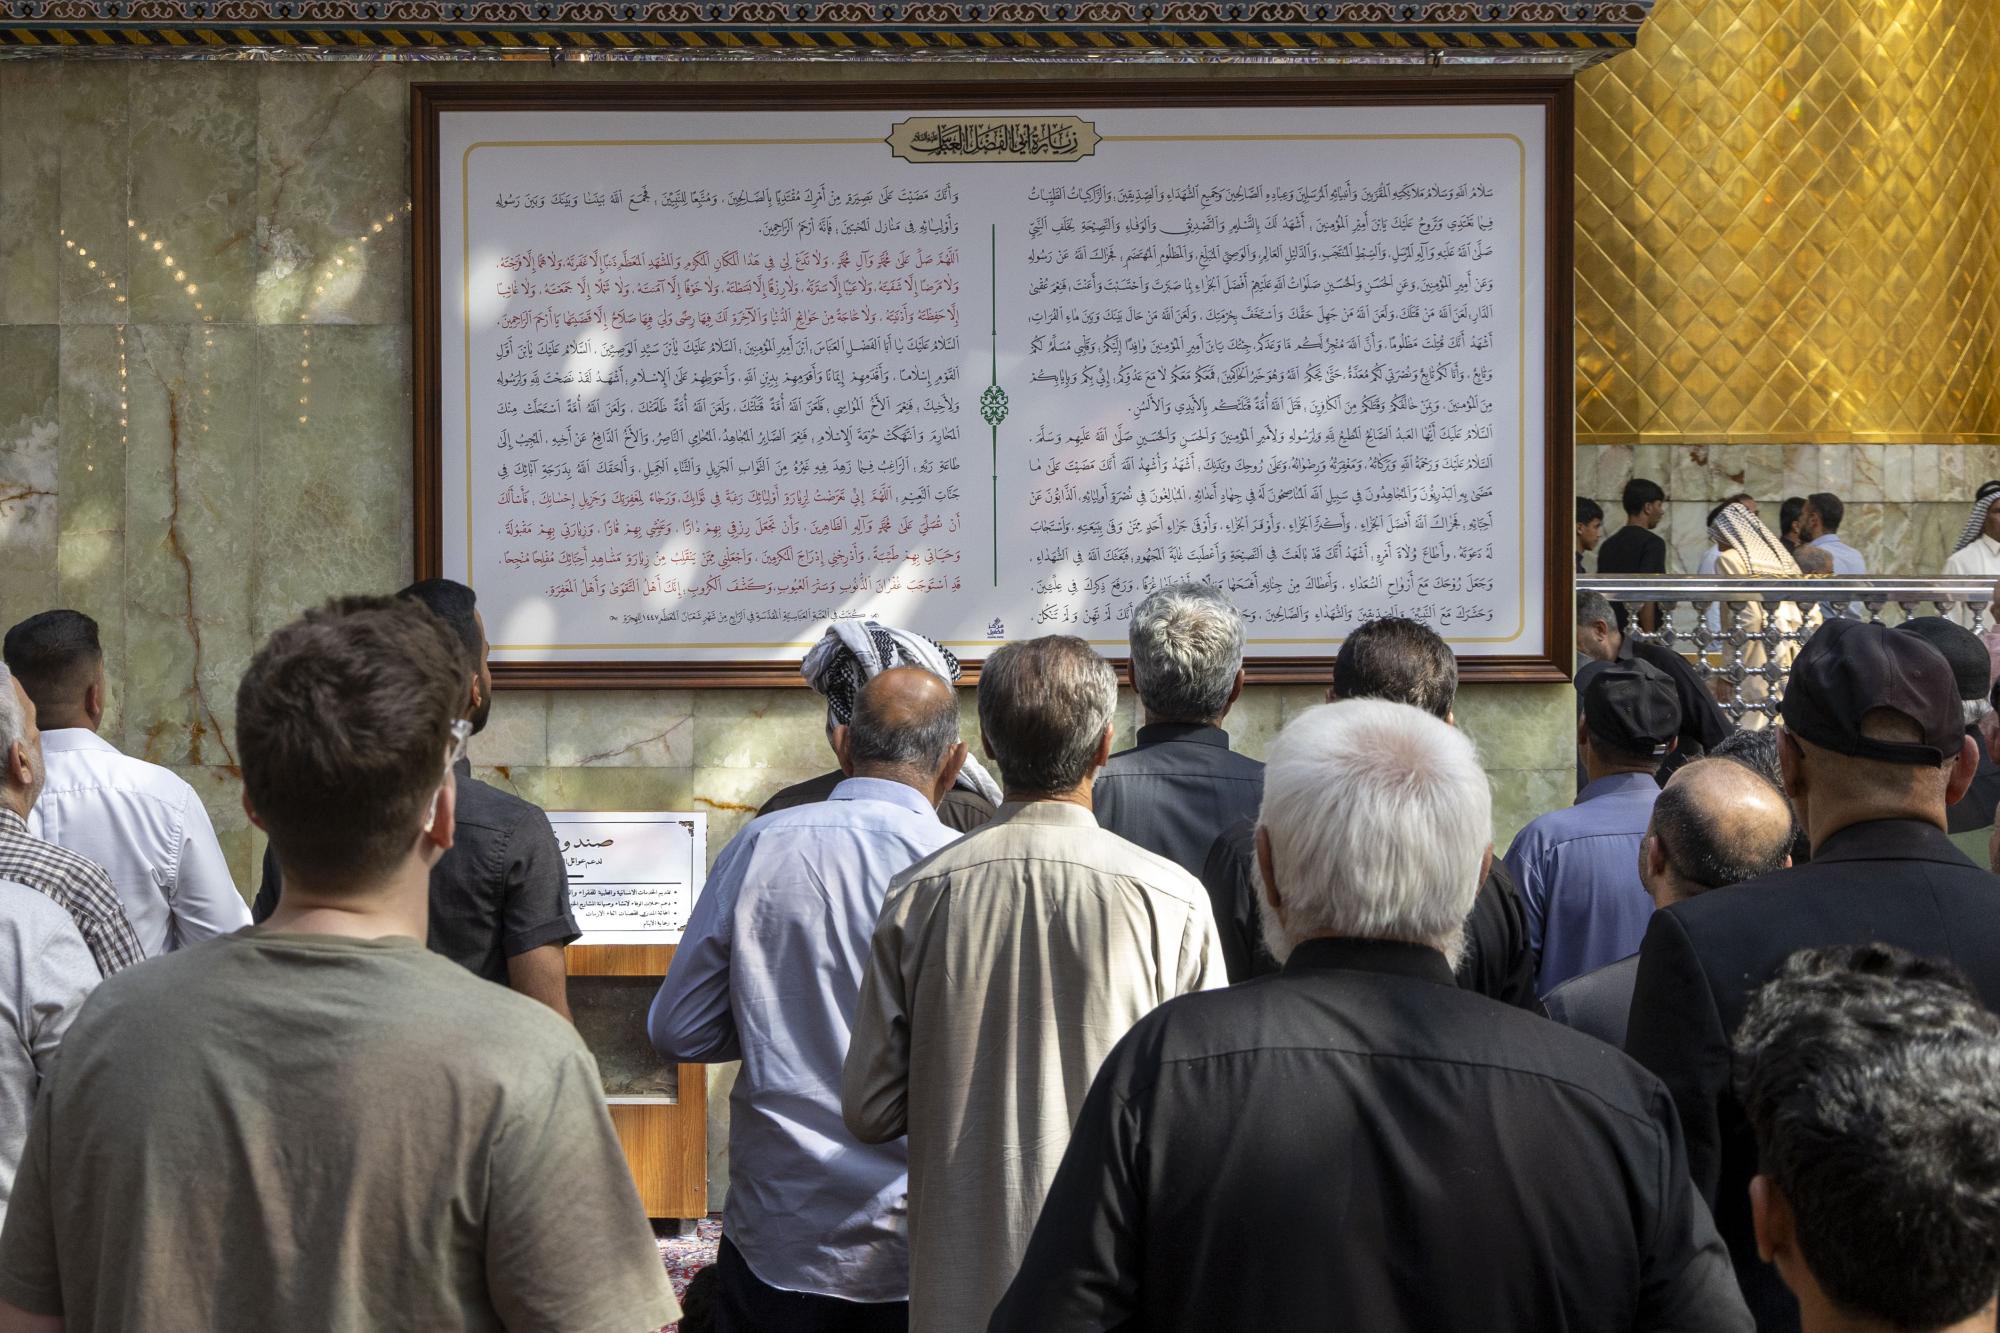 زِيَارَةُ أَبِي الْفَضْلِ الْعَبَّاسِ عليه السلام
سَلَامُ اللهِ وَسَلَامُ مَلَائِكَتِهِ الْمُقَرَّبِينَ وَأَنْبِيَائِهِ الْمُرْسَلِينَ وَعِبَادِهِ الصَّالِحِينَ وَجَمِيعِ الشُّهَدَاءِ وَالصِّدِّيقِينَ، وَالزَّاكِيَاتُ الطَّيِّبَاتُ
فِيمَا تَغْتَدِي وَتَرُوحُ عَلَيْكَ يَابْنَ أَمِيرِ الْمُؤْمِنِينَ، أَشْهَدُ لَكَ بِالتَّسْلِيمِ وَالتَّصْدِيقِ وَالْوَفَاءِ وَالنَّصِيحَةِ لِخَلَفِ النَّبِيِّ
صَلَّى اللهُ عَلَيْهِ وَآلِهِ الْمُرْسَلِ، وَالسِّبْطِ الْمُنْتَجَبِ، وَالدَّلِيلِ الْعَالِمِ، وَالْوَصِيِّ الْمُبَلِّغِ، وَالْمَظْلُومِ الْمُهْتَضَمِ، فَجَزَاكَ اللهُ عَنْ رَسُولِهِ
وَعَنْ أَمِيرِ الْمُؤْمِنِينَ، وَعَنِ الْحَسَنِ وَالْحُسَيْنِ صَلَوَاتُ اللهِ عَلَيْهِمْ أَفْضَلَ الْجَزَاءِ بِمَا صَبَرْتَ وَاحْتَسَبْتَ وَأَعَنْتَ، فَنِعْمَ عُقْبَى
الدَّارِ، لَعَنَ اللهُ مَنْ قَتَلَكَ، وَلَعَنَ اللهُ مَنْ جَهِلَ حَقَّكَ وَاسْتَخَفَّ بِحُرْمَتِكَ، وَلَعَنَ اللهُ مَنْ حَالَ بَيْنَكَ وَبَيْنَ مَاءِ الْفُرَاتِ،
أَشْهَدُ أَنَّكَ قُتِلْتَ مَظْلُومًا، وَأَنَّ اللهَ مُنْجِزٌ لَكُمْ مَا وَعَدَكُمْ، جِئْتُكَ يَابْنَ أَمِيرِ الْمُؤْمِنِينَ وَافِدًا إِلَيْكُمْ، وَقَلْبِي مُسَلِّمٌ لَكُمْ
وَتَابِعٌ، وَأَنَا لَكُمْ تَابِعٌ وَنُصْرَتِي لَكُمْ مُعَدَّةٌ، حَتَّى يَحْكُمَ اللهُ وَهُوَ خَيْرُ الْحَاكِمِينَ، فَمَعَكُمْ مَعَكُمْ لَا مَعَ عَدُوِّكُمْ، إِنِّي بِكُمْ وَبِإِيَابِكُمْ
مِنَ الْمُؤْمِنِينَ، وَبِمَنْ خَالَفَكُمْ وَقَتَلَكُمْ مِنَ الْكَافِرِينَ، قَتَلَ اللهُ أُمَّةً قَتَلَتْكُمْ بِالْأَيْدِي وَالْأَلْسُنِ.
السَّلَامُ عَلَيْكَ أَيُّهَا الْعَبْدُ الصَّالِحُ الْمُطِيعُ لِلَّهِ وَلِرَسُولِهِ وَلِأَمِيرِ الْمُؤْمِنِينَ وَالْحَسَنِ وَالْحُسَيْنِ صَلَّى اللهُ عَلَيْهِمْ وَسَلَّمَ.
السَّلَامُ عَلَيْكَ وَرَحْمَةُ اللهِ وَبَرَكَاتُهُ، وَمَغْفِرَتُهُ وَرِضْوَانُهُ، وَعَلَى رُوحِكَ وَبَدَنِكَ، أَشْهَدُ وَأُشْهِدُ اللهَ أَنَّكَ مَضَيْتَ عَلَى مَا
مَضَى بِهِ الْبَدْرِيُّونَ وَالْمُجَاهِدُونَ فِي سَبِيلِ اللهِ الْمُنَاصِحُونَ لَهُ فِي جِهَادِ أَعْدَائِهِ، الْمُبَالِغُونَ فِي نُصْرَةِ أَوْلِيَائِهِ، الذَّابُّونَ عَنْ
أَحِبَّائِهِ، فَجَزَاكَ اللهُ أَفْضَلَ الْجَزَاءِ، وَأَكْثَرَ الْجَزَاءِ، وَأَوْفَرَ الْجَزَاءِ، وَأَوْفَى جَزَاءِ أَحَدٍ مِمَّنْ وَفَى بِبَيْعَتِهِ، وَاسْتَجَابَ
لَهُ دَعْوَتَهُ، وَأَطَاعَ وُلَاةَ أَمْرِهِ، أَشْهَدُ أَنَّكَ قَدْ بَالَغْتَ فِي النَّصِيحَةِ وَأَعْطَيْتَ غَايَةَ الْمَجْهُودِ، فَبَعَثَكَ اللهُ فِي الشُّهَدَاءِ،
وَجَعَلَ رُوحَكَ مَعَ أَرْوَاحِ السُّعَدَاءِ، وَأَعْطَاكَ مِنْ جِنَانِهِ أَفْسَحَهَا مَنْزِلًا وَأَفْضَلَهَا غُرَفًا، وَرَفَعَ ذِكْرَكَ فِي عِلِّيِّينَ،
وَحَشَرَكَ مَعَ النَّبِيِّينَ وَالصِّدِّيقِينَ وَالشُّهَدَاءِ وَالصَّالِحِينَ، أَنَّكَ لَمْ تَهِنْ وَلَمْ تَنْكُلْ،
وَأَنَّكَ مَضَيْتَ عَلَى بَصِيرَةٍ مِنْ أَمْرِكَ مُقْتَدِيًا بِالصَّالِحِينَ، وَمُتَّبِعًا لِلنَّبِيِّينَ، فَجَمَعَ اللهُ بَيْنَنَا وَبَيْنَكَ وَبَيْنَ رَسُولِهِ
وَأَوْلِيَائِهِ فِي مَنَازِلِ الْمُخْبِتِينَ، فَإِنَّهُ أَرْحَمُ الرَّاحِمِينَ.
اللَّهُمَّ صَلِّ عَلَى مُحَمَّدٍ وَآلِ مُحَمَّدٍ، وَلَا تَدَعْ لِي فِي هَذَا الْمَكَانِ الْمُكَرَّمِ وَالْمَشْهَدِ الْمُعَظَّمِ ذَنْبًا إِلَّا غَفَرْتَهُ، وَلَا هَمًّا إِلَّا فَرَّجْتَهُ،
وَلَا مَرَضًا إِلَّا شَفَيْتَهُ، وَلَا عَيْبًا إِلَّا سَتَرْتَهُ، وَلَا رِزْقًا إِلَّا بَسَطْتَهُ، وَلَا خَوْفًا إِلَّا آمَنْتَهُ، وَلَا شَمْلًا إِلَّا جَمَعْتَهُ، وَلَا غَائِبًا
إِلَّا حَفِظْتَهُ وَأَدْنَيْتَهُ، وَلَا حَاجَةً مِنْ حَوَائِجِ الدُّنْيَا وَالْآخِرَةِ لَكَ فِيهَا رِضًى وَلِيَ فِيهَا صَلَاحٌ إِلَّا قَضَيْتَهَا يَا أَرْحَمَ الرَّاحِمِينَ.
السَّلَامُ عَلَيْكَ يَا أَبَا الْفَضْلِ الْعَبَّاسَ، ابْنَ أَمِيرِ الْمُؤْمِنِينَ، السَّلَامُ عَلَيْكَ يَابْنَ سَيِّدِ الْوَصِيِّينَ، السَّلَامُ عَلَيْكَ يَابْنَ أَوَّلِ
الْقَوْمِ إِسْلَامًا، وَأَقْدَمِهِمْ إِيمَانًا وَأَقْوَمِهِمْ بِدِينِ اللهِ، وَأَحْوَطِهِمْ عَلَى الْإِسْلَامِ، أَشْهَدُ لَقَدْ نَصَحْتَ لِلَّهِ وَلِرَسُولِهِ
وَلِأَخِيكَ، فَنِعْمَ الْأَخُ الْمُوَاسِي، فَلَعَنَ اللهُ أُمَّةً قَتَلَتْكَ، وَلَعَنَ اللهُ أُمَّةً ظَلَمَتْكَ، وَلَعَنَ اللهُ أُمَّةً اسْتَحَلَّتْ مِنْكَ
الْمَحَارِمَ وَانْتَهَكَتْ حُرْمَةَ الْإِسْلَامِ، فَنِعْمَ الصَّابِرُ الْمُجَاهِدُ، الْمُحَامِي النَّاصِرُ، وَالْأَخُ الدَّافِعُ عَنْ أَخِيهِ، الْمُجِيبُ إِلَى
طَاعَةِ رَبِّهِ، الرَّاغِبُ فِيمَا زَهِدَ فِيهِ غَيْرُهُ مِنَ الثَّوَابِ الْجَزِيلِ وَالثَّنَاءِ الْجَمِيلِ، وَأَلْحَقَكَ اللهُ بِدَرَجَةِ آبَائِكَ فِي
جَنَّاتِ النَّعِيمِ، اللَّهُمَّ إِنِّي تَعَرَّضْتُ لِزِيَارَةِ أَوْلِيَائِكَ رَغْبَةً فِي ثَوَابِكَ، وَرَجَاءً لِمَغْفِرَتِكَ وَجَزِيلِ إِحْسَانِكَ، فَأَسْأَلُكَ
أَنْ تُصَلِّيَ عَلَى مُحَمَّدٍ وَآلِهِ الطَّاهِرِينَ، وَأَنْ تَجْعَلَ رِزْقِي بِهِمْ دَارًّا، وَعَيْشِي بِهِمْ قَارًّا، وَزِيَارَتِي بِهِمْ مَقْبُولَةً،
وَحَيَاتِي بِهِمْ طَيِّبَةً، وَأَدْرِجْنِي إِدْرَاجَ الْمُكْرَمِينَ، وَاجْعَلْنِي مِمَّنْ يَنْقَلِبُ مِنْ زِيَارَةِ مَشَاهِدِ أَحِبَّائِكَ مُفْلِحًا مُنْجِحًا،
قَدِ اسْتَوْجَبَ غُفْرَانَ الذُّنُوبِ وَسَتْرَ الْعُيُوبِ وَكَشْفَ الْكُرُوبِ، إِنَّكَ أَهْلُ التَّقْوَى وَأَهْلُ الْمَغْفِرَةِ.
كُتِبَتْ فِي الْعَتَبَةِ الْعَبَّاسِيَّةِ الْمُقَدَّسَةِ فِي الرَّابِعِ مِنْ شَهْرِ شَعْبَانَ الْمُعَظَّمِ ١٤٤٧ لِلْهِجْرَةِ
مركز
الكفيل
صندو
لدعم عوائل
تقديم الخدمات الانسانية والطبية للفقراء
دعم حملات الوفاء لانشاء وصيانة المشاريع
رعاية الايتام